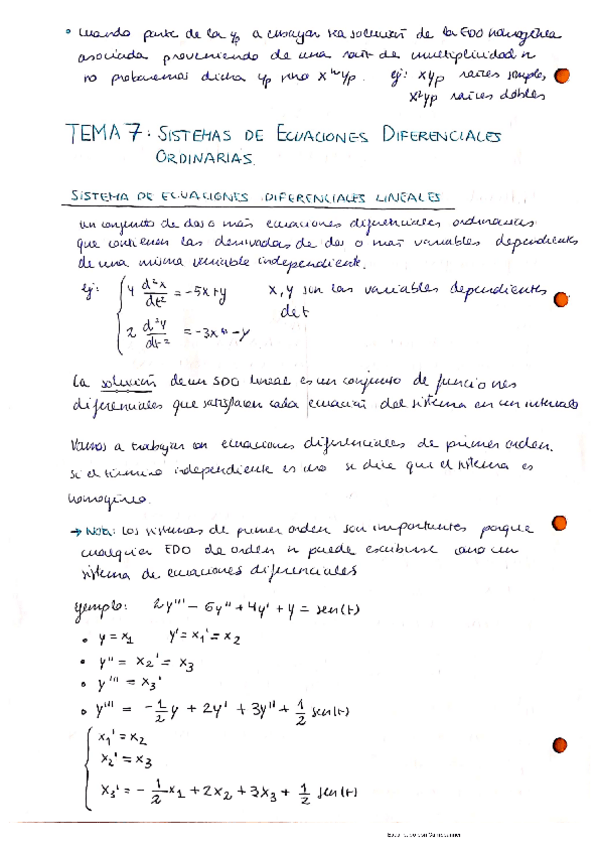 • Cuando parte de la yp a ensayar sea solución de la EDO homogénea
asociada proveniendo de una raíz de multiplicidad n
no probaremos dicha yp sino xⁿyp. ej: xyp raíces simples
x²yp raíces dobles
TEMA 7: SISTEMAS DE ECUACIONES DIFERENCIALES
ORDINARIAS.
SISTEMA DE ECUACIONES DIFERENCIALES LINEALES
un conjunto de dos o más ecuaciones diferenciales ordinarias
que contienen las derivadas de dos o más variables dependientes
de una misma variable independiente.
ej: { 4 d²x/dt² = -5x+y x, y son las variables dependientes
de t
2 d²y/dt² = -3x - y
La solución de un SDO lineal es un conjunto de funciones
diferenciales que satisfacen cada ecuación del sistema en un intervalo
Vamos a trabajar con ecuaciones diferenciales de primer orden.
si el término independiente es se dice que el sistema es
homogéneo.
→ Nota: Los sistemas de primer orden son importantes porque
cualquier EDO de orden n puede escribirse como un
sistema de ecuaciones diferenciales
ejemplo: 2y''' - 6y'' + 4y' + y = sen(t)
• y = x₁ y' = x₁' = x₂
• y'' = x₂' = x₃
• y''' = x₃'
• y''' = -1/2 y + 2y' + 3y'' + 1/2 sen(t)
{ x₁' = x₂
x₂' = x₃
x₃' = -1/2 x₁ + 2x₂ + 3x₃ + 1/2 sen(t)